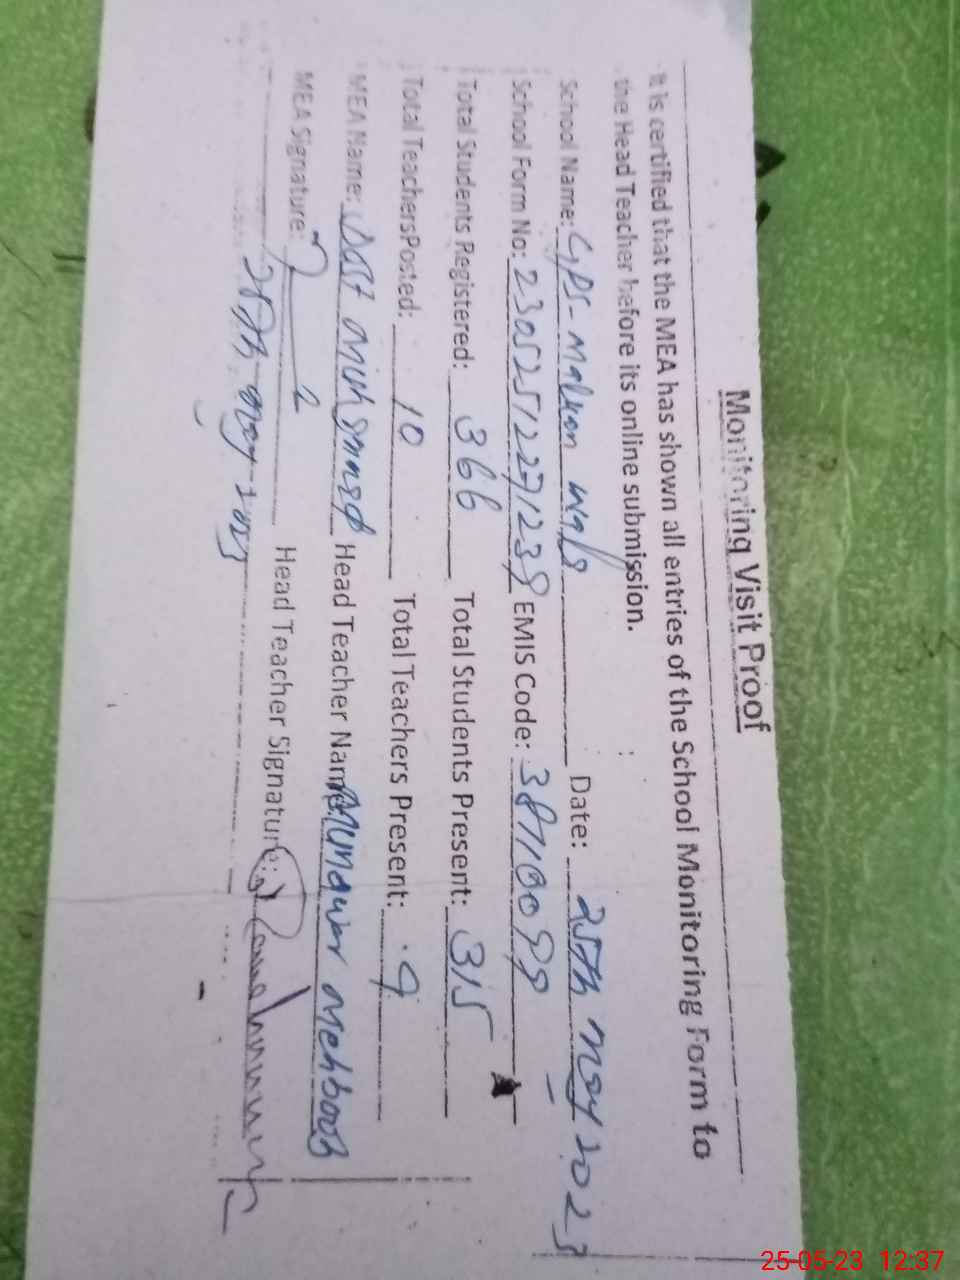 Monitoring Visit Proof
It is certified that the MEA has shown all entries of the School Monitoring Form to
the Head Teacher before its online submission.
School Name: GPS- Malwan wala Date: 25th May 2023
School Form No: 230525122712 EMIS Code:
Total Students Registered: 366 Total Students Present: 315
Total TeachersPosted: 10 Total Teachers Present: 9
MEA Name: Head Teacher Name: Munawar Mehboob
MEA Signature: Head Teacher Signature:
25th May 2023
25-05-23 12:37